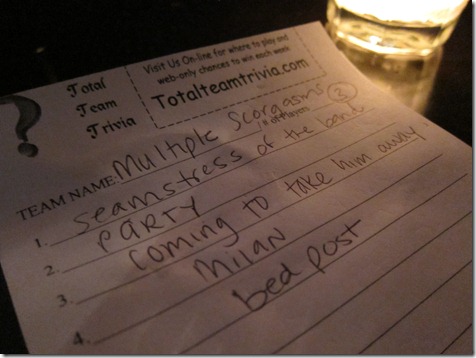 Visit Us On-line for where to play and
web-only chances to win each week
Totalteamtrivia.com
?
Total
Team
Trivia
# of Players
3
TEAM NAME: Multiple Scorgasms
1. seamstress of the band
2. PARTY
coming to take him away
3. Milan
4. bed post